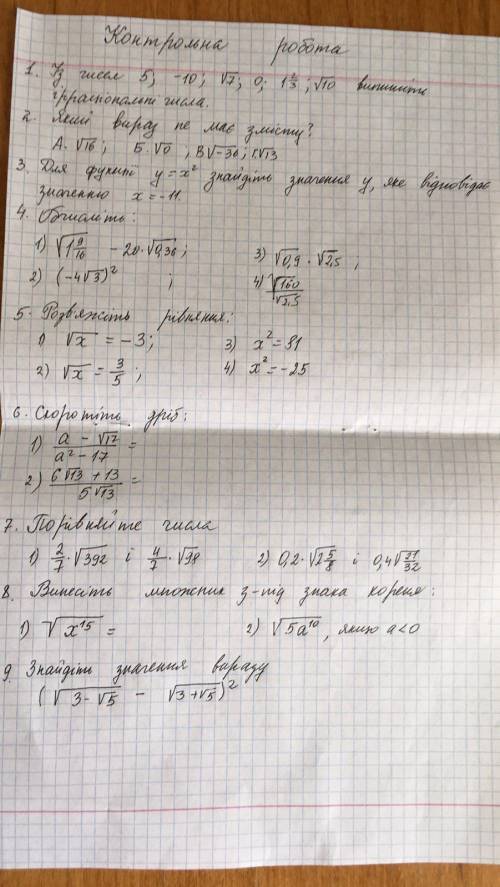 Контрольна робота
1. Із чисел 5; -10; √7; 0; 1 2/3; √10 випишіть
ірраціональні числа.
2. Який вираз не має змісту?
А. √16; Б. √0, В√-36; Г.√13
3. Для функції y = x² знайдіть значення y, яке відповідає
значенню x = -11.
4. Обчисліть:
1) √(1 9/16) - 20·√0,36; 3) √0,9 · √2,5 ;
2) (-4√3)² ; 4) √160/√2,5
5. Розв'яжіть рівняння:
1) √x = -3; 3) x² = 31
2) √x = 3/5 ; 4) x² = -25
6. Скоротіть дріб:
1) (a - √17)/(a² - 17) =
2) (6√13 + 13)/(5√13) =
7. Порівняйте числа
1) 2/7 · √392 і 4/7 · √98 2) 0,2 · √(2 5/8) і 0,4√(21/32)
8. Винесіть множник з-під знака кореня:
1) √x¹⁵ = 2) √5a¹⁰, якщо a<0
9. Знайдіть значення виразу
(√(3-√5) - √(3+√5))²